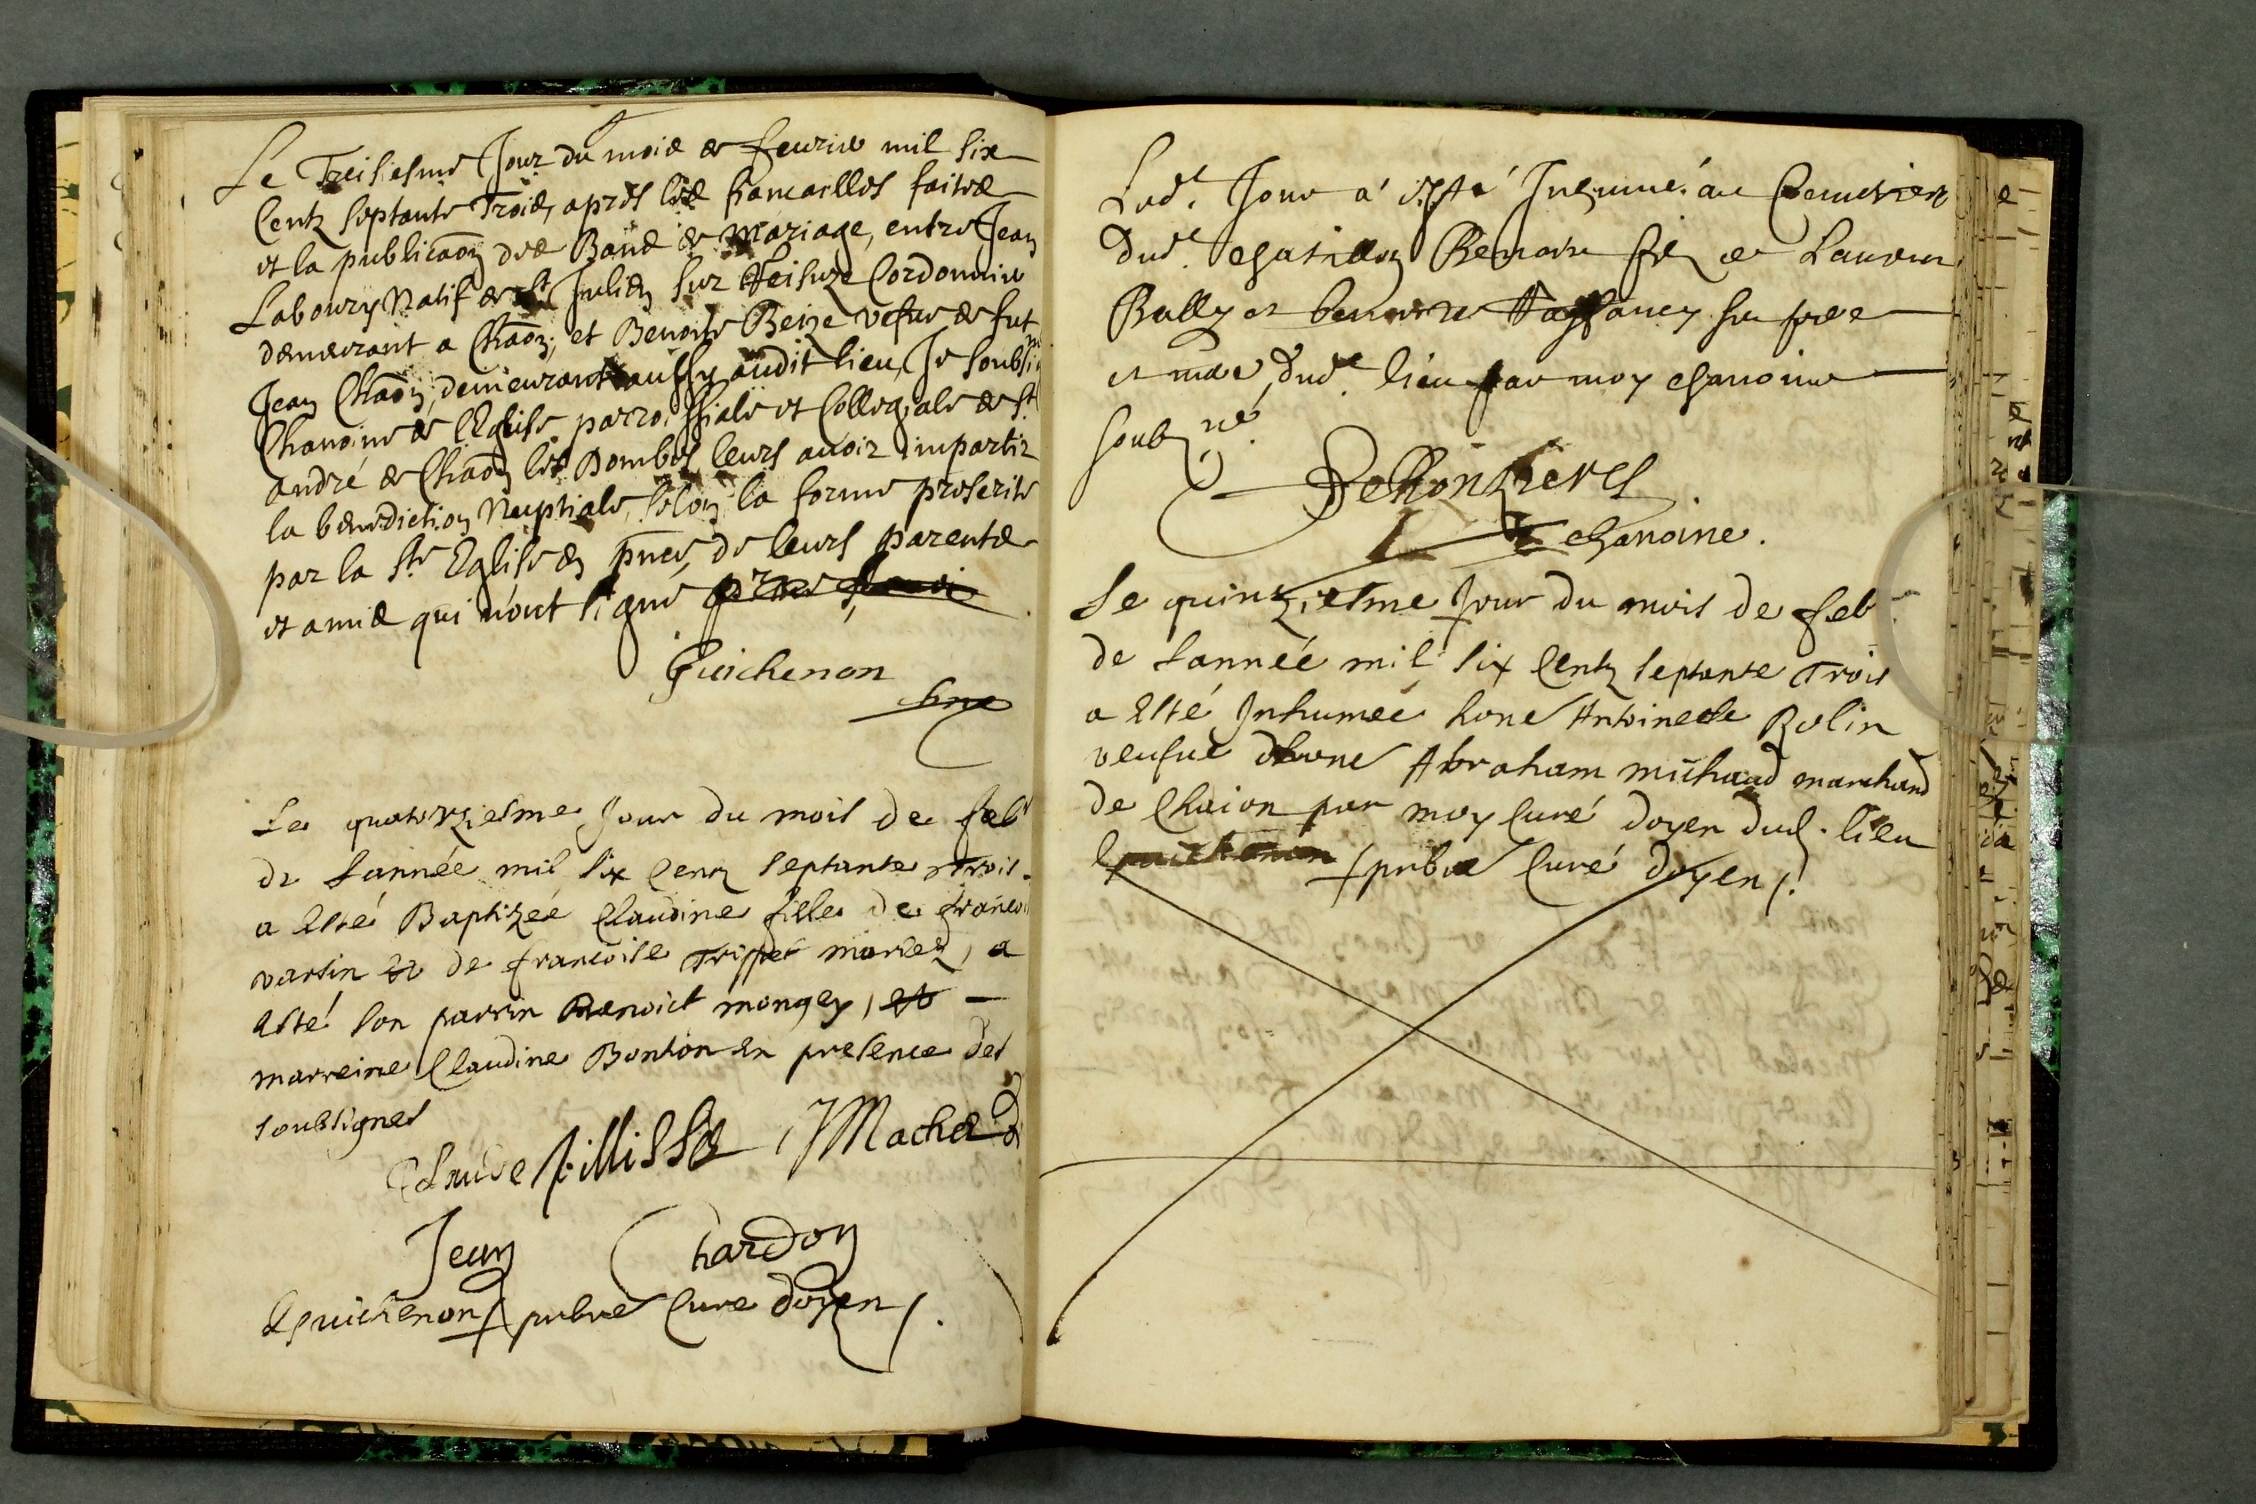 Le Treisiesme Jour du mois de feurier mil six
Centz septante Trois, apres les fiancailles faites
et la publicaon des Bans de mariage, entre Jean
Laboury Natif de St Julien sur Reisuze Cordonnier
demeurant a Chaon; et Benoiste Beize vefue de fut
Jean Chaon, demeurant aussy audit lieu, Je soubsi
Chanoine de l'Eglise parroissiale et Collegiale de St
andré de Chaon les Dombes leurs auoir impartir
la benediction Nuptiale, selon la forme prescrite
par la Ste Eglise en pnce, de leurs parents
et amis qui n'ont signé
Guichenon
chne
Le quatorziesme Jour du mois de feb
de Lannée mil six Centz septante trois.
a Esté Baptizée Claudine fille de francoi
vartin et de francoise Trippet mariez, a
esté son parrin Benoict mongey, et
marreine Claudine Bonton en presence des
soubsignes
Claude fillissé JMachard
Jean Chardon
Guichenon pbre Cure doyen.
Led. Jour a esté Inhumé au Cemetiere
dud. chatillon Benoist filz de Laurens
Bally et benoiste su pere
et mere dud. lieu par moy chanoine
soubz né
chanoine.
Le quinziesme Jour du mois de feb
de Lannée mil six Centz septante Trois
a Esté Inhumée hone Antoinette Rolin
veufue dhone Abraham michaud marchand
de Chaion par moy Curé doyen dud. lieu
Guichenon pbre Curé doyen.